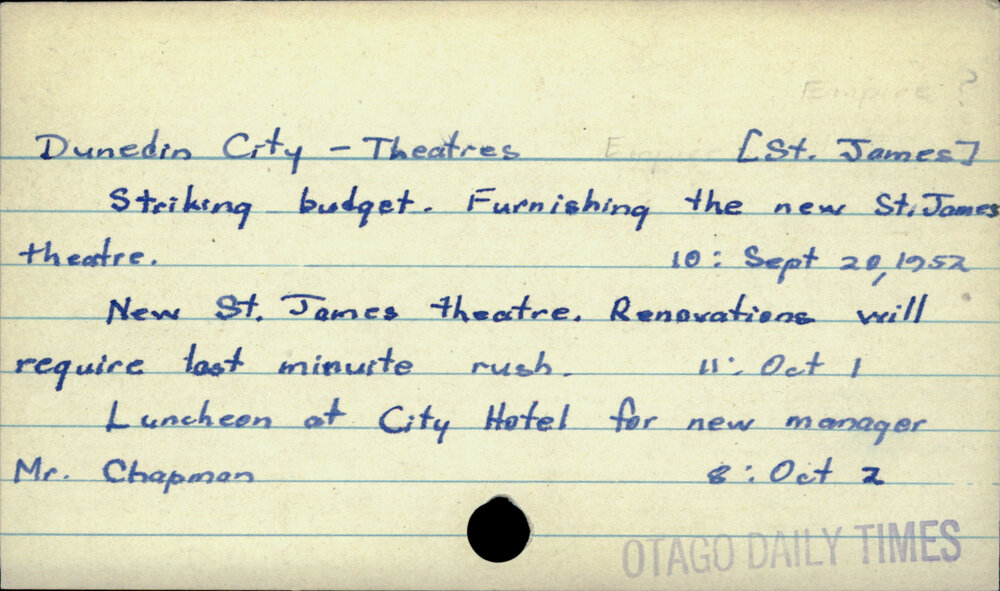 Empire ?
Dunedin City - Theatres [St. James]
Striking budget. Furnishing the new St. James
theatre. 10: Sept 20, 1952
New St. James theatre. Renovations will
require last minuite rush. 11: Oct 1
Luncheon at City Hotel for new manager
Mr. Chapman 8: Oct 2
OTAGO DAILY TIMES